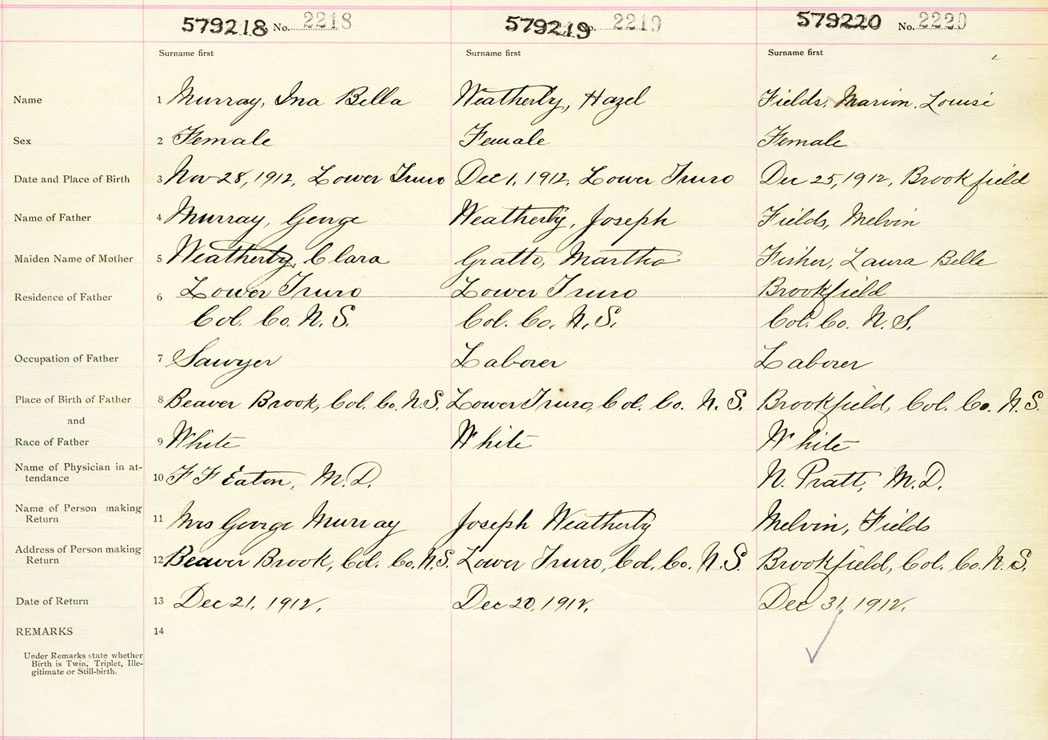 579218 No. 2218 579219 No. 2219 579220 No. 2220
Surname first Surname first Surname first
Name 1 Murray, Ina Bella Weatherby, Hazel Fields, Marion Louise
Sex 2 Female Female Female
Date and Place of Birth 3 Nov 28, 1912, Lower Truro Dec 1, 1912, Lower Truro Dec 25, 1912, Brookfield
Name of Father 4 Murray, George Weatherby, Joseph Fields, Melvin
Maiden Name of Mother 5 Weatherby, Clara Gratto, Martha Fisher, Laura Belle
Residence of Father 6 Lower Truro Lower Truro Brookfield
Col. Co. N.S. Col. Co. N.S. Col. Co. N.S.
Occupation of Father 7 Sawyer Laborer Laborer
Place of Birth of Father 8 Beaver Brook, Col. Co. N.S. Lower Truro, Col. Co. N.S. Brookfield, Col. Co. N.S.
and
Race of Father 9 White White White
Name of Physician in at-
tendance 10 F F Eaton, M.D. N. Pratt, M.D.
Name of Person making
Return 11 Mrs George Murray Joseph Weatherby Melvin, Fields
Address of Person making
Return 12 Beaver Brook, Col. Co. N.S. Lower Truro, Col. Co. N.S. Brookfield, Col. Co. N.S.
Date of Return 13 Dec 21, 1912. Dec 20, 1912. Dec 31, 1912.
REMARKS 14
Under Remarks state whether
Birth is Twin, Triplet, Ille-
gitimate or Still-birth.